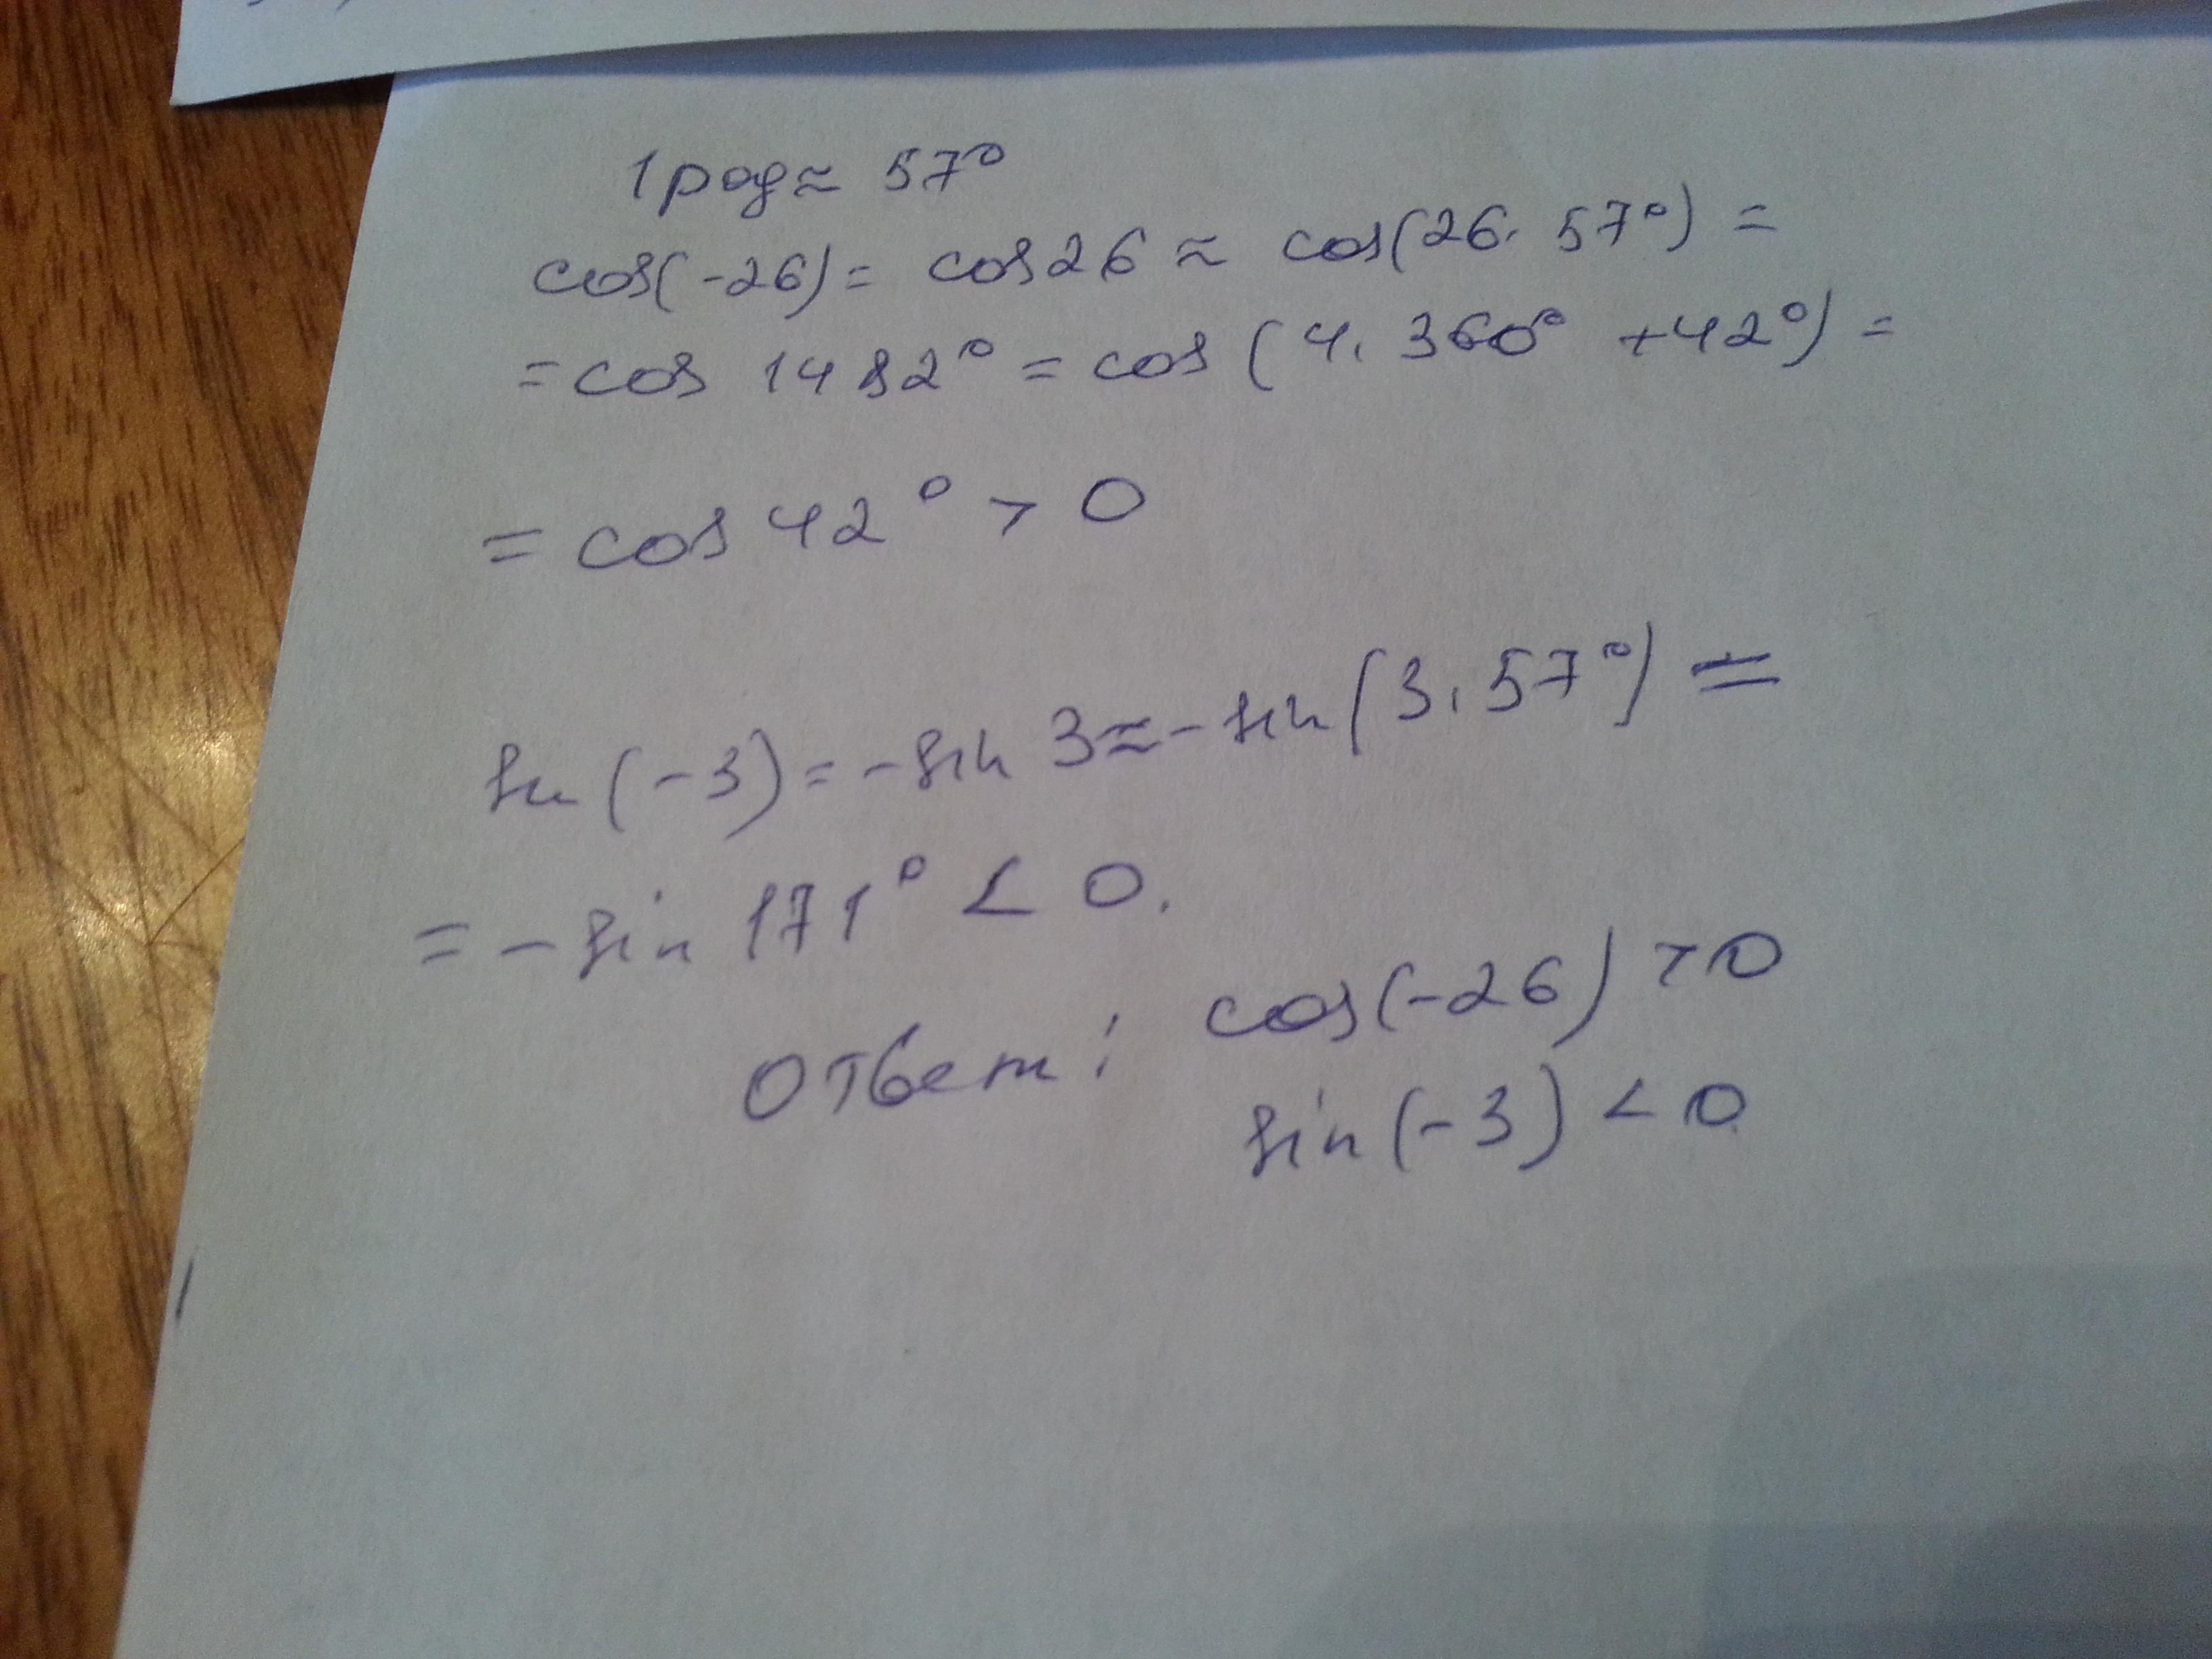 1 рад ≈ 57°
cos(-26) = cos26 ≈ cos(26. 57°) =
= cos 1482° = cos (4. 360° +42°) =
= cos 42° > 0
sin (-3) = -sin 3 ≈ -sin(3. 57°) =
= - sin 171° < 0.
Ответ: cos(-26) > 0
sin(-3) < 0